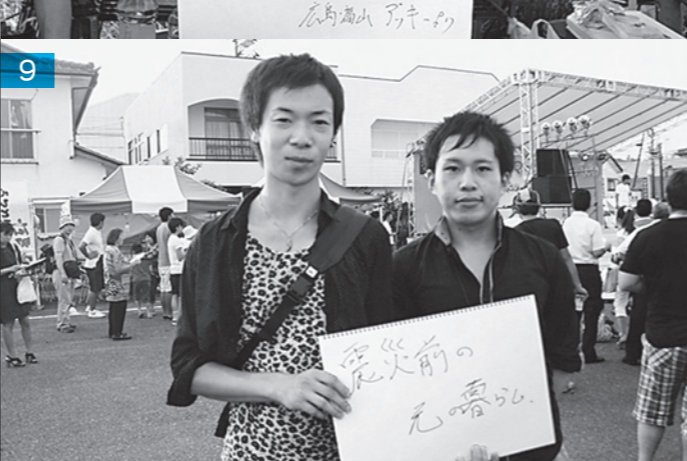 広島福山 アッキーより
9
震災前の
元の暮らし.